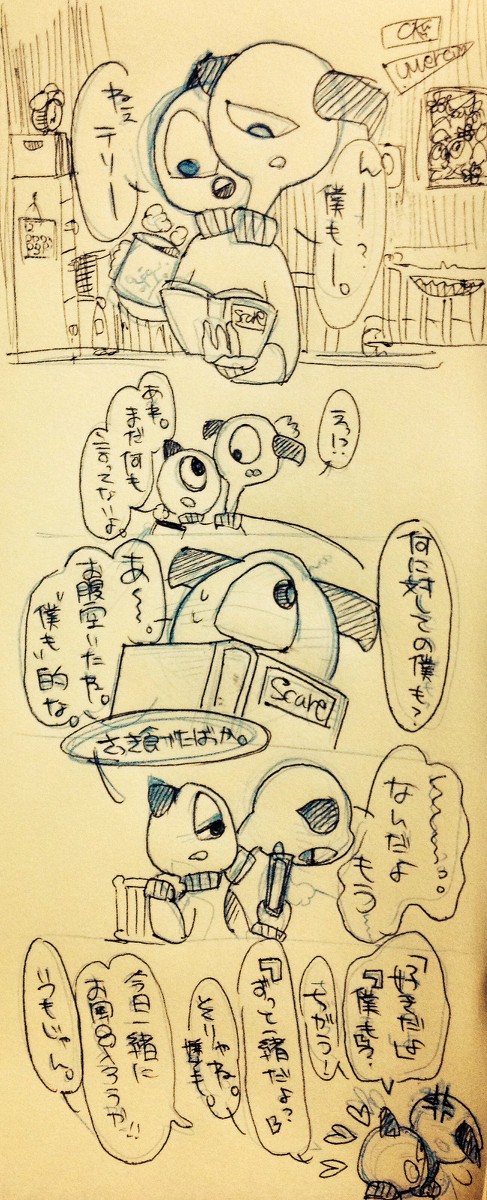 ねぇ
テリー
んー?
僕もー。
Scare
えっ!?
あれ。
まだ何も
言ってないよ。
何に対しての僕も?
あ〜〜。
お腹空いたね。
"僕も"的な。
Scare
さっき食べたばっか。
なんだよ
もう
「好きだよ」
『僕も』
ちがう!
『ずっと一緒だよ?』
とりゃね。
僕も。
今日一緒に
お風呂入ろうか!!
いつもじゃん。